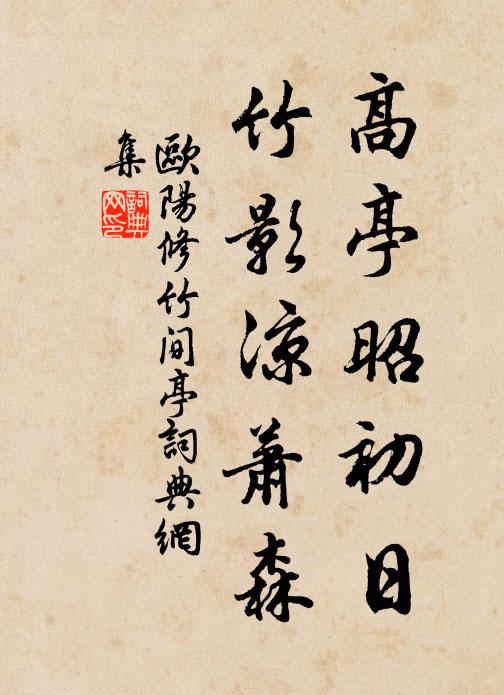 高亭昭初日
竹影涼蕭森
歐陽修竹間亭詞典網
集
詞典
网印